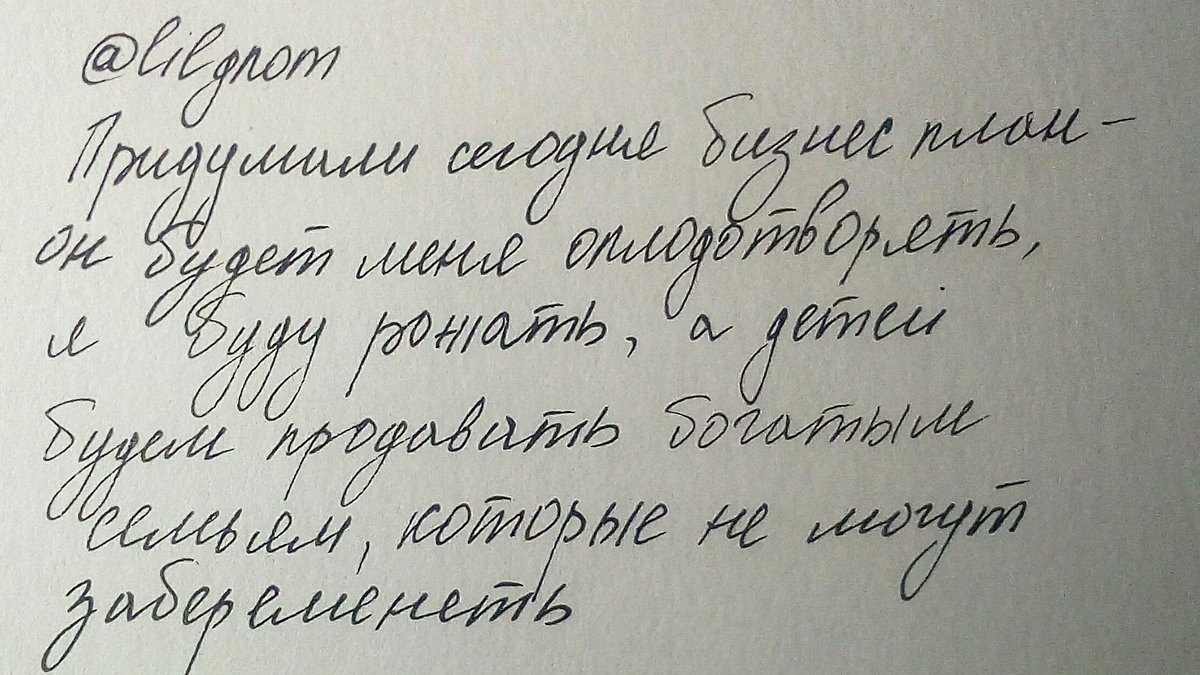 @lilgnom
Придумали сегодня бизнес план –
он будет меня оплодотворять,
я буду рожать, а детей
будем продавать богатым
семьям, которые не могут
забеременеть